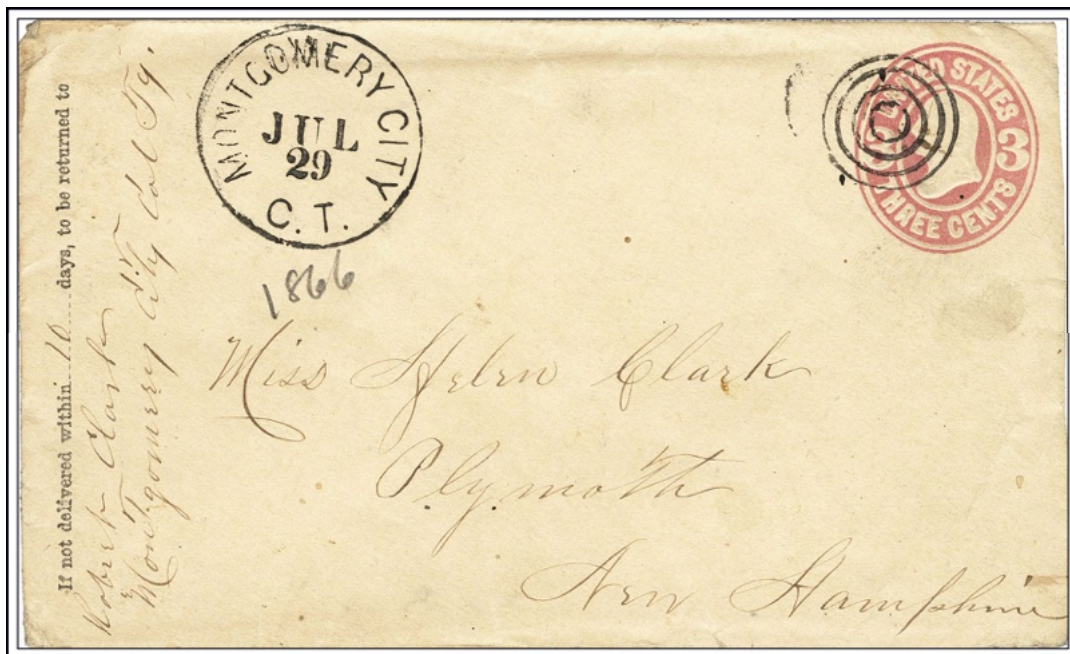 If not delivered within 10 days, to be returned to
Robert Clark
Montgomery City Col Ty.
MONTGOMERY CITY
JUL
29
C. T.
1866
UNITED STATES
3
THREE CENTS
Miss Helen Clark
Plymoth
New Hampshire